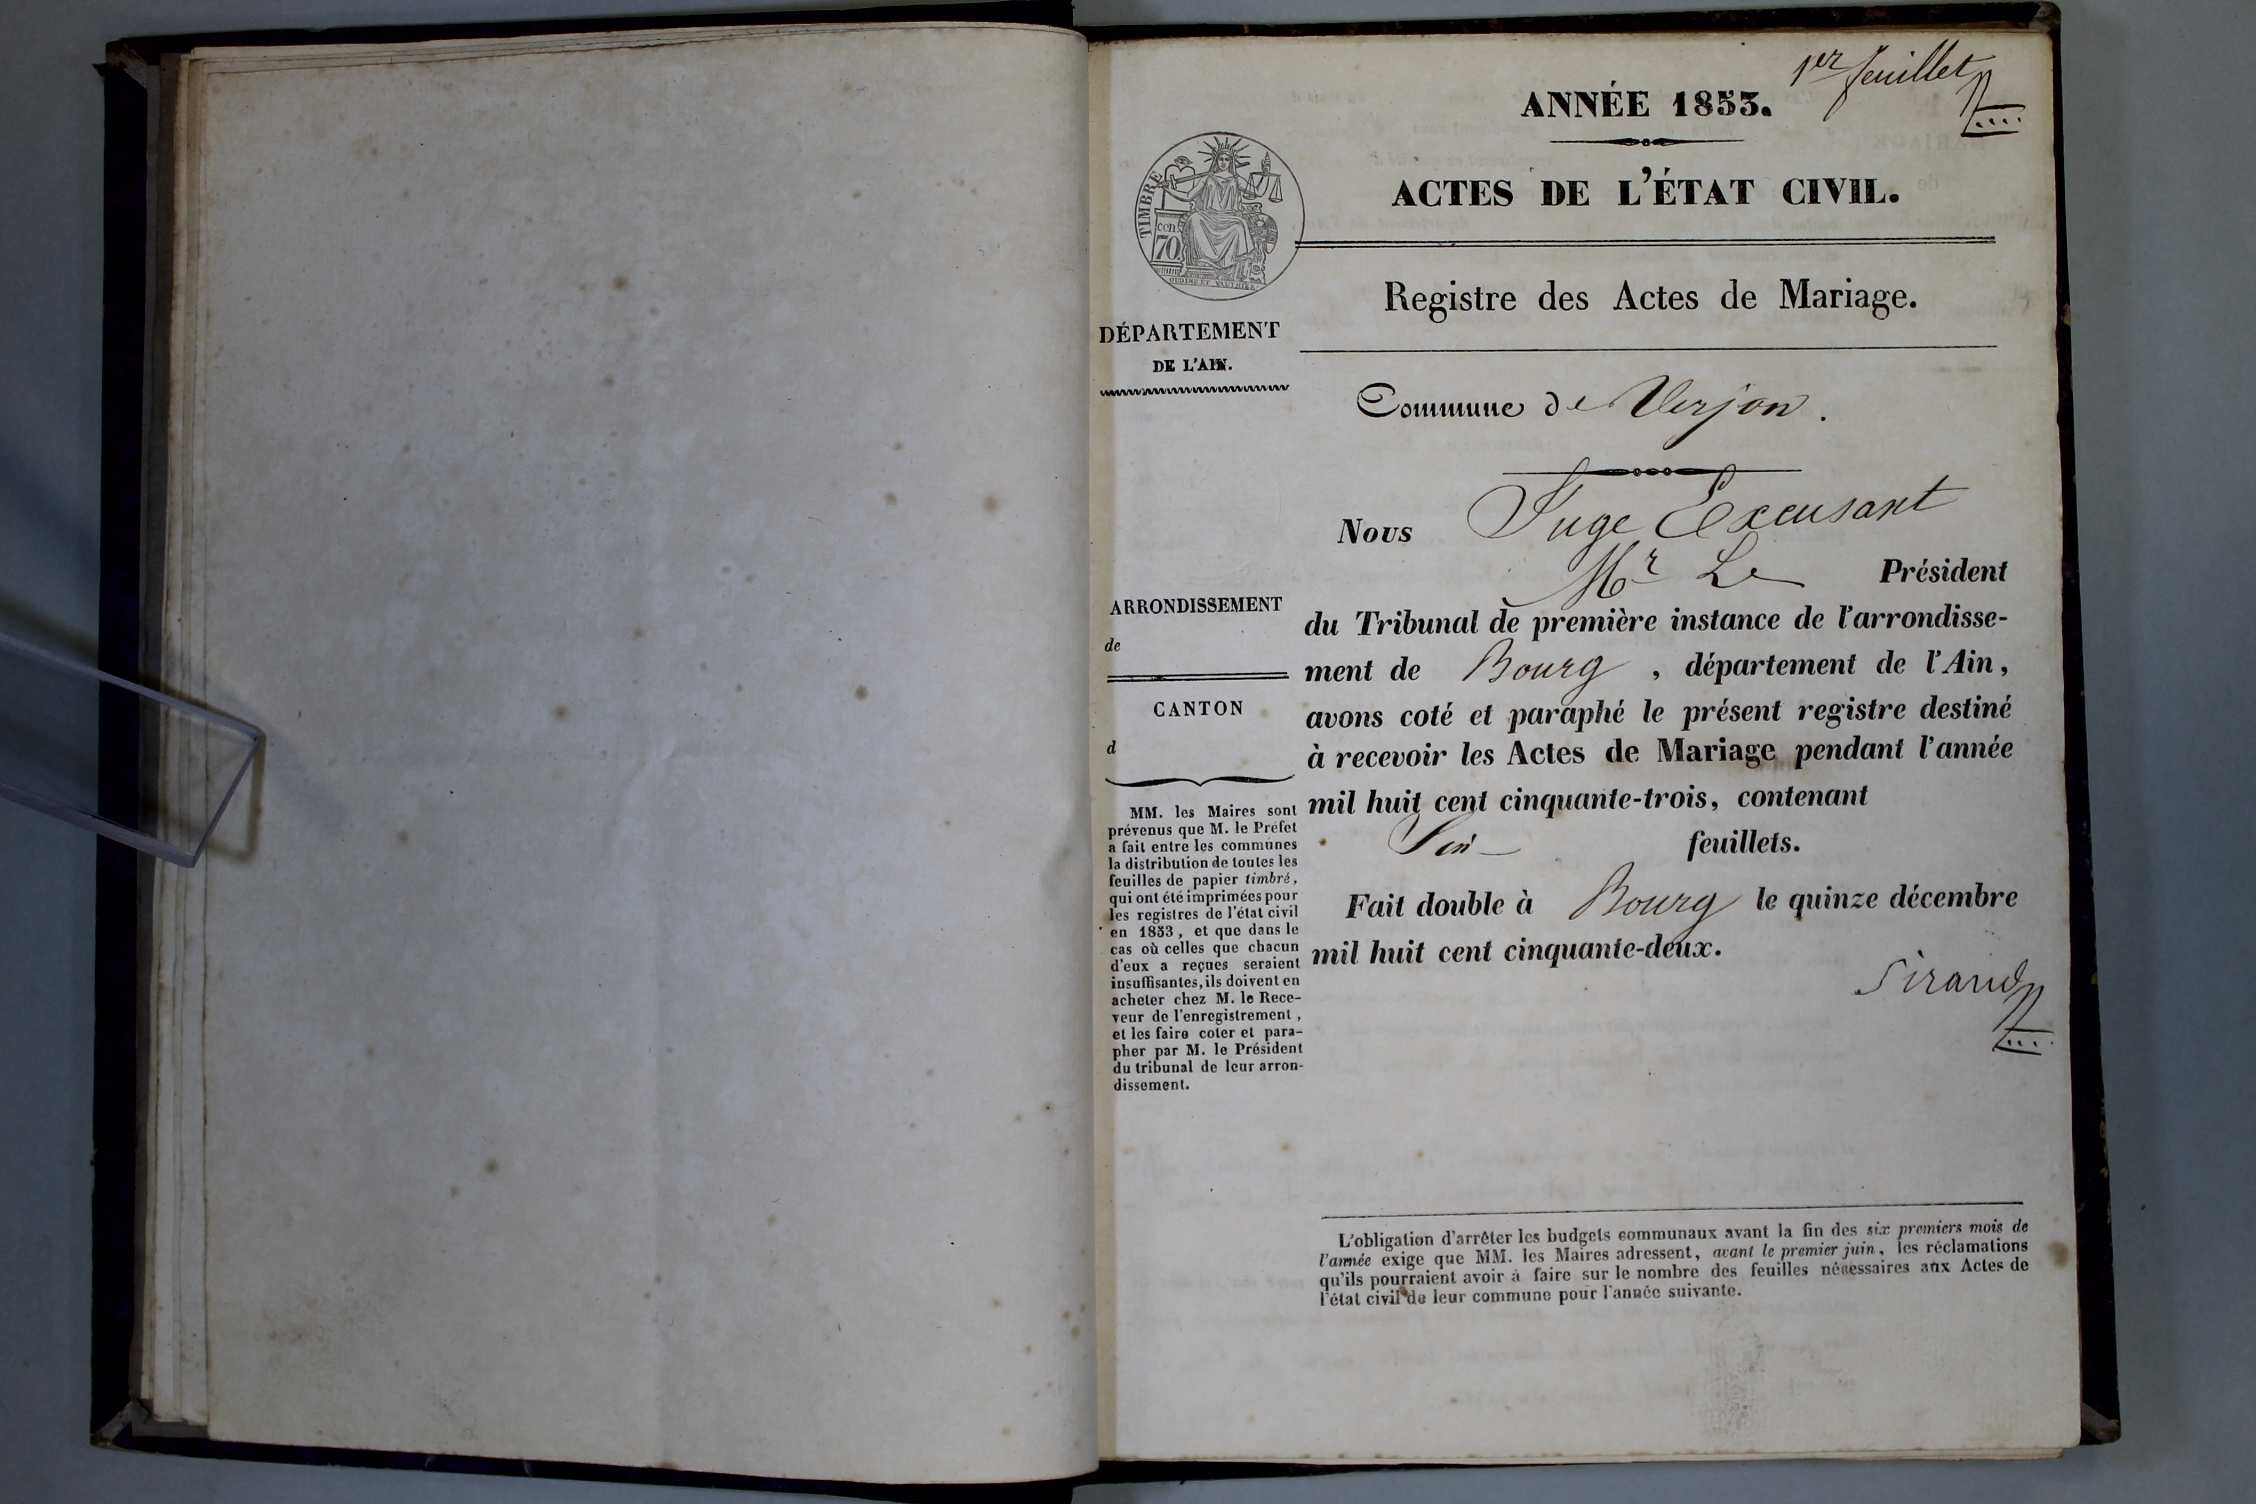 1er feuillet
ANNÉE 1853.
ACTES DE L'ÉTAT CIVIL.
TIMBRE
cen.
70
OUDINÉ ET VAUTHIER.
Registre des Actes de Mariage.
DÉPARTEMENT
DE L'AIN.
Commune de Verjon.
Nous Juge Excusant
Mr Le Président
du Tribunal de première instance de l'arrondisse-
ment de Bourg, département de l'Ain,
avons coté et paraphé le présent registre destiné
à recevoir les Actes de Mariage pendant l'année
mil huit cent cinquante-trois, contenant
feuillets.
Fait double à Bourg le quinze décembre
mil huit cent cinquante-deux.
Sirand
ARRONDISSEMENT
de
CANTON
d
MM. les Maires sont
prévenus que M. le Préfet
a fait entre les communes
la distribution de toutes les
feuilles de papier timbré,
qui ont été imprimées pour
les registres de l'état civil
en 1853, et que dans le
cas où celles que chacun
d'eux a reçues seraient
insuffisantes, ils doivent en
acheter chez M. le Rece-
veur de l'enregistrement,
et les faire coter et para-
pher par M. le Président
du tribunal de leur arron-
dissement.
L'obligation d'arrêter les budgets communaux avant la fin des six premiers mois de
l'année exige que MM. les Maires adressent, avant le premier juin, les réclamations
qu'ils pourraient avoir à faire sur le nombre des feuilles nécessaires aux Actes de
l'état civil de leur commune pour l'année suivante.